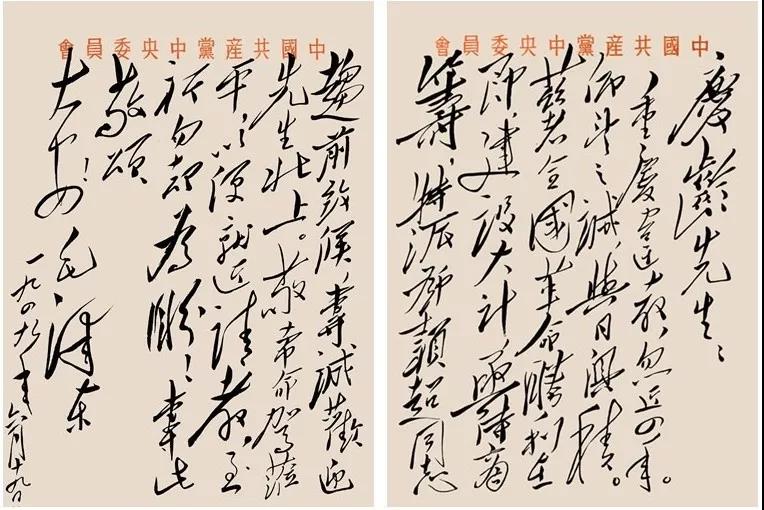 中國共産黨中央委員會
慶齡先生：
重慶違教，忽近四年。
仰望之誠，與日俱積。
兹者全國革命勝利在
即，建設大計，亟待商
籌，特派鄧穎超同志
中國共産黨中央委員會
趨前致候，專誠歡迎
先生北上。敬希命駕蒞
平，以便就近請教，至
祈勿却為盼！專此
敬頌
大安！
毛澤東
一九四九年六月十九日